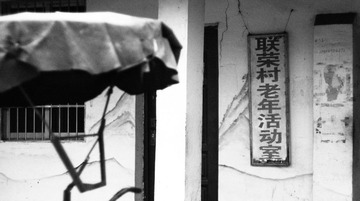 联荣村老年活动室